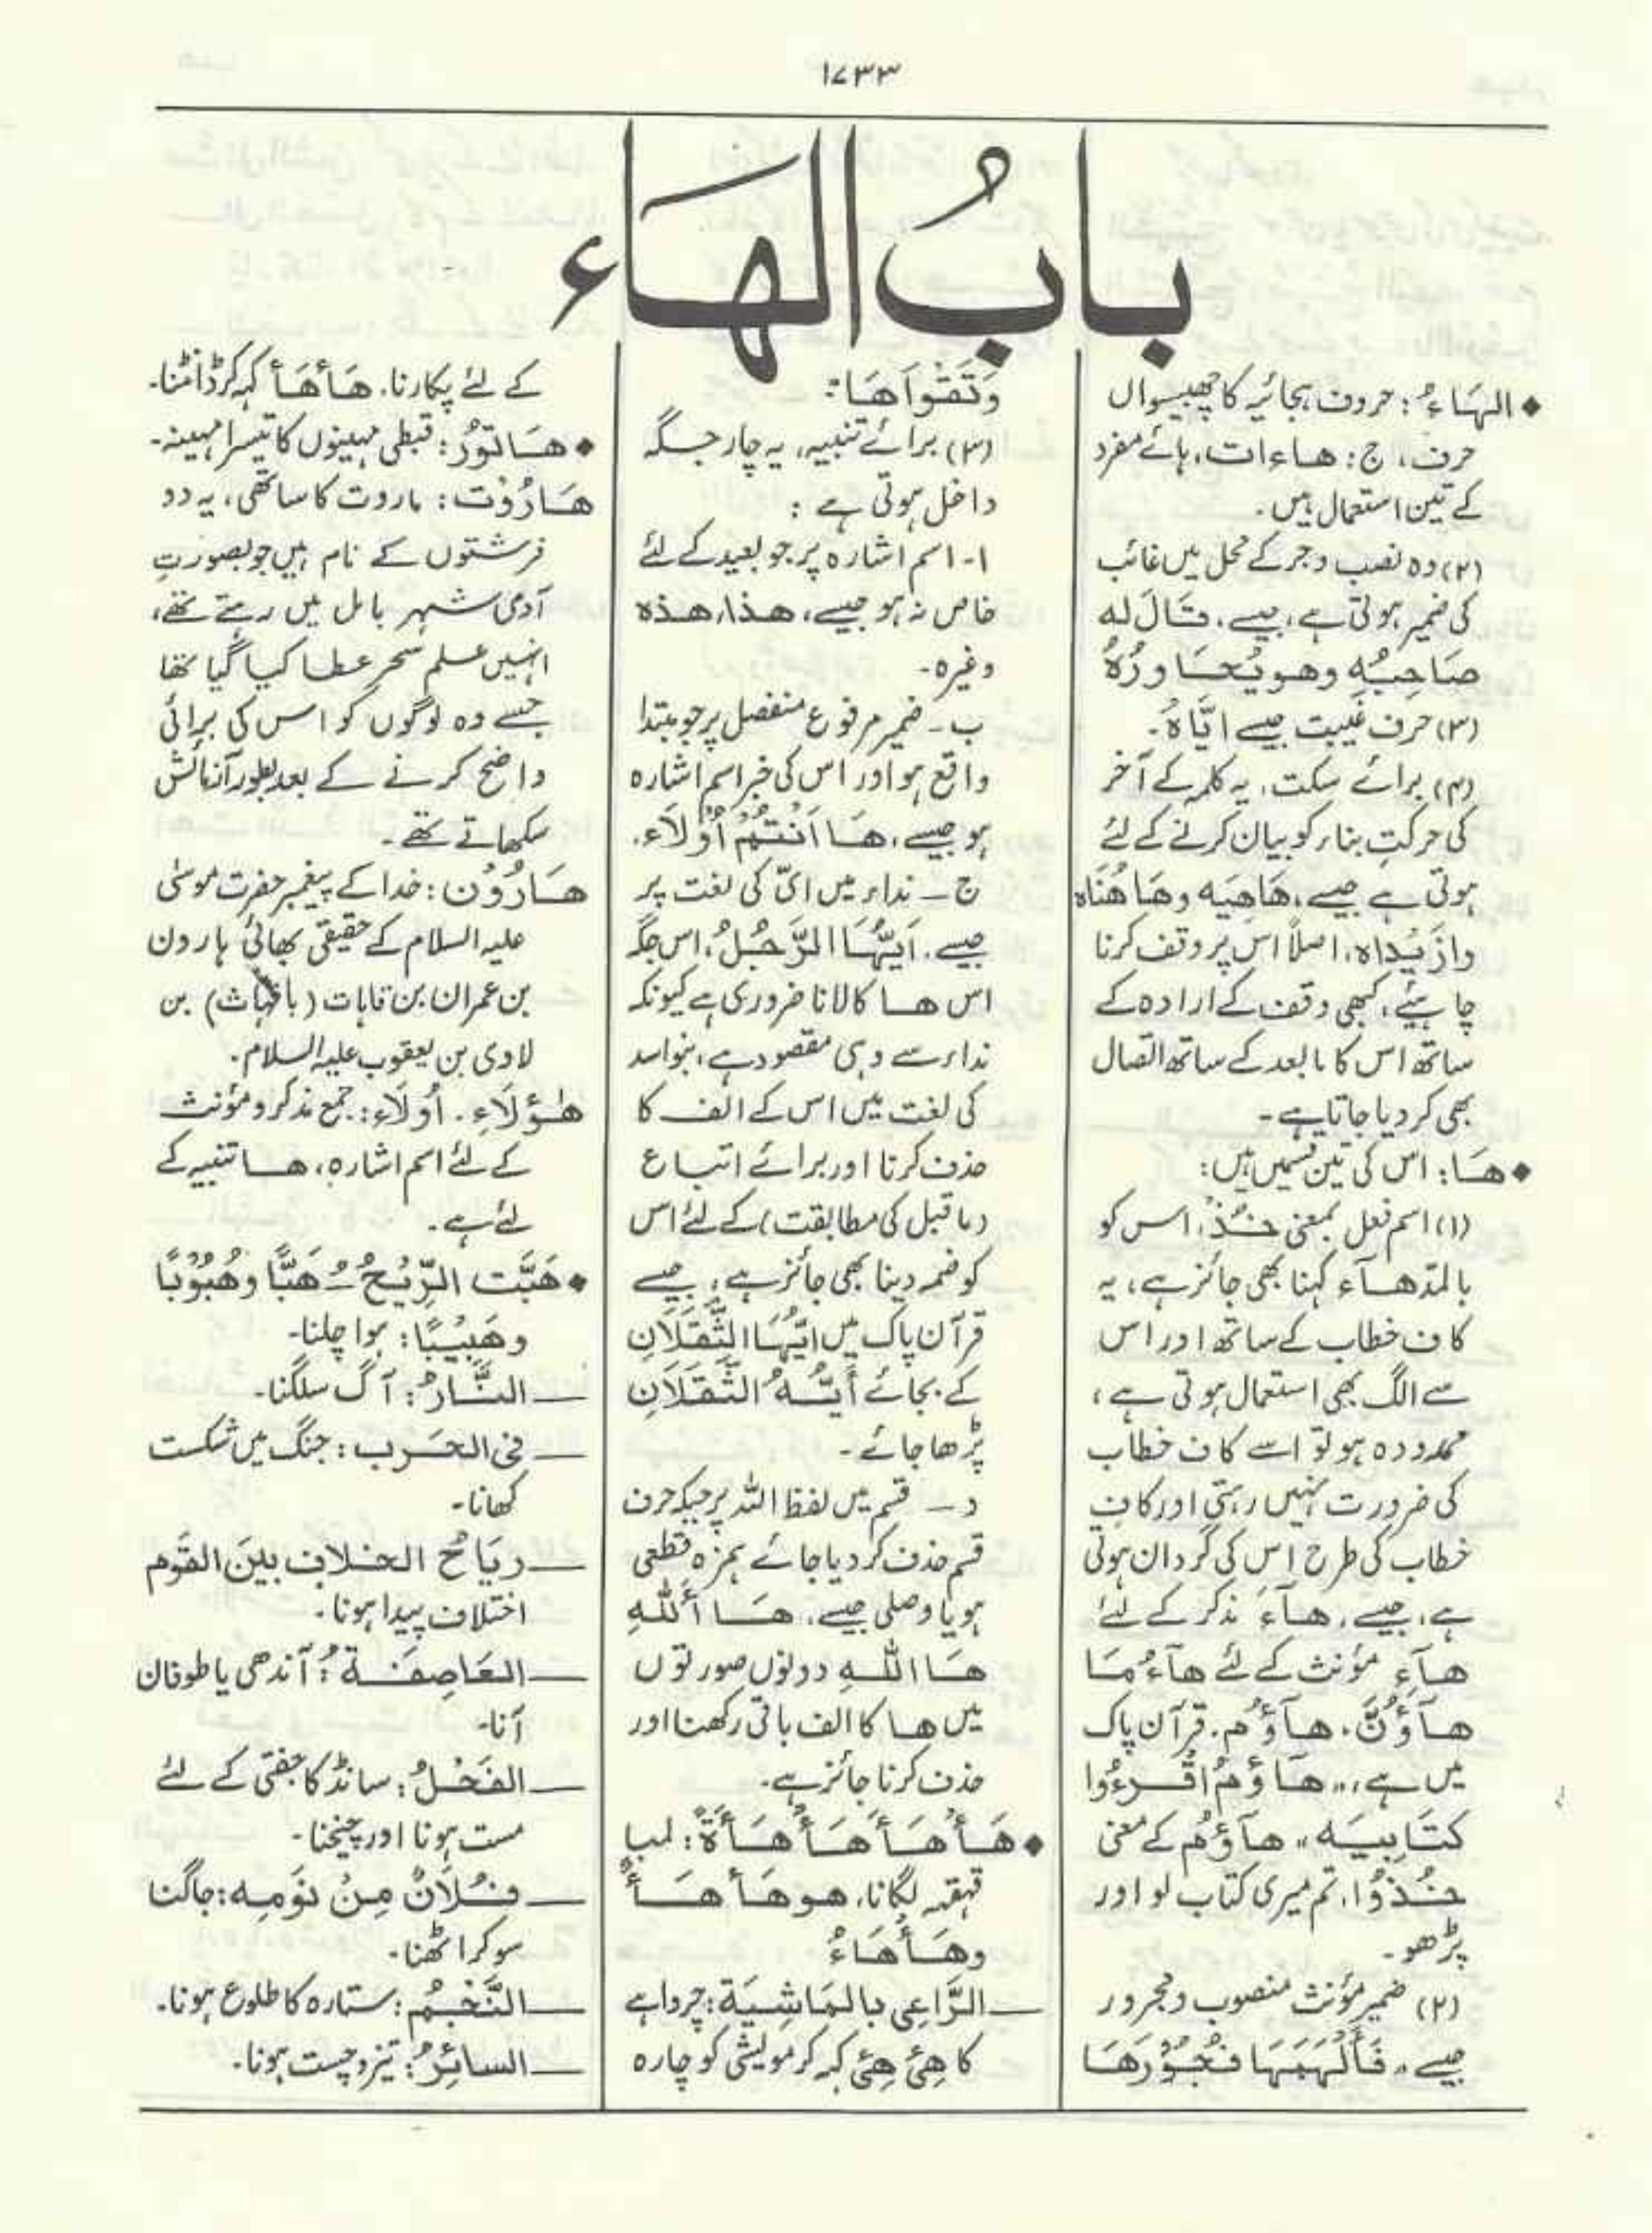 ۱۷۳۳
بابُ الهَاء
♦ الهَاءُ: حروف ہجائیہ کا چھبیسواں
حرف، ج: هاءات، ہائے مفرد
کے تین استعمال ہیں۔
(۲) وہ نصب وجر کے محل میں غائب
کی ضمیر ہوتی ہے، جیسے، قَالَ له
صَاحِبُهٗ وهو يُحَاورُهٗ
(۳) حرف غیبت جیسے ایَّاهُ۔
(۴) برائے سکت، یہ کلمہ کے آخر
کی حرکتِ بناء کو بیان کرنے کے لئے
ہوتی ہے جیسے، هَاهِيَه وهَاهُنَاه
وازَيْدَاه، اصلاً اس پر وقف کرنا
چاہئیے، کبھی وقف کے ارادہ کے
ساتھ اس کا مابعد کے ساتھ اتصال
بھی کر دیا جاتا ہے۔
♦ هَا: اس کی تین قسمیں ہیں:
(۱) اسم فعل بمعنی خُذْ، اس کو
بالمدّ هآء کہنا بھی جائز ہے، یہ
کاف خطاب کے ساتھ اور اس
سے الگ بھی استعمال ہوتی ہے،
ممدودہ ہو تو اسے کاف خطاب
کی ضرورت نہیں رہتی اور کاف
خطاب کی طرح اس کی گردان ہوتی
ہے، جیسے، هآءَ مذکر کے لئے
هآءِ مؤنث کے لئے هآءُمَا
هآؤُنَّ، هآؤُم، قرآن پاک
میں ہے، "هَاؤُمُ اقْرءُوا
كتَابِيَه" هآؤُم کے معنی
خُذُوْا، تم میری کتاب لو اور
پڑھو۔
(۲) ضمیر مؤنث منصوب ومجرور
جیسے "فَأَلْهَمَهَا فُجُوْرَهَا
وَتَقْوَاهَا"
(۳) برائے تنبیہ، یہ چار جگہ
داخل ہوتی ہے:
ا۔ اسم اشارہ پر جو بعید کے لئے
خاص نہ ہو جیسے، هذا، هذه
وغیرہ۔
ب۔ ضمیر مرفوع منفصل پر جو مبتدا
واقع ہو اور اس کی خبر اسم اشارہ
ہو جیسے، هَا اَنْتُمْ اُوْلَاء۔
ج۔ نداء میں ایّ کی لغت پر
جیسے، اَيُّهَا الرَّجُلُ، اس جگہ
اس ها کا لانا ضروری ہے کیونکہ
نداء سے وہی مقصود ہے، بنو اسد
کی لغت میں اس کے الف کا
حذف کرنا اور برائے اتباع
(ماقبل کی مطابقت) کے لئے اس
کو ضمہ دینا بھی جائز ہے، جیسے
قرآن پاک میں ايُّهَا الثَّقَلَانِ
کے بجائے أَيُّهُ الثَّقَلَانِ
پڑھا جائے۔
د۔ قسم میں لفظ اللہ پر جبکہ حرف
قسم حذف کر دیا جائے ہمزہ قطعی
ہو یا وصلی جیسے، هَا أَللهِ
هَا اللهِ دونوں صورتوں
میں ها کا الف باقی رکھنا اور
حذف کرنا جائز ہے۔
♦ هَأْهَأَ هَأْهَأَةً: لمبا
قہقہہ لگانا، هو هَأْهَأٌ
وهَأْهَاءٌ
— الرَّاعِي بالمَاشِيَة: چرواہے
کا هِئْ هِئْ کہہ کر مویشی کو چارہ
کے لئے پکارنا، هَأْهَأْ کہہ کر ڈانٹنا۔
♦ هَاتُورُ: قبطی مہینوں کا تیسرا مہینہ۔
هَارُوْت: ماروت کا ساتھی، یہ دو
فرشتوں کے نام ہیں جو بصورتِ
آدمی شہر بابل میں رہتے تھے،
انہیں علم سحر عطا کیا گیا تھا
جسے وہ لوگوں کو اس کی برائی
واضح کرنے کے بعد بطور آزمائش
سکھاتے تھے۔
هَارُوْن: خدا کے پیغمبر حضرت موسیٰ
علیہ السلام کے حقیقی بھائی ہارون
بن عمران بن قاہات (یا قہاث) بن
لاوی بن یعقوب علیہ السلام۔
هٰؤُلَاءِ، أُولَاءِ: جمع مذکر ومؤنث
کے لئے اسم اشارہ، ها تنبیہ کے
لئے ہے۔
♦ هَبَّت الرِّيْحُ ُ هَبًّا وهُبُوْبًا
وهَبِيْبًا: ہوا چلنا۔
— النَّارُ: آگ سلگنا۔
— فی الحَرب: جنگ میں شکست
کھانا۔
— ریَاحُ الخلافِ بینَ القَوم
اختلاف پیدا ہونا۔
— العَاصِفَةُ: آندھی یا طوفان
آنا۔
— الفَحْلُ: سانڈ کا جفتی کے لئے
مست ہونا اور چیخنا۔
— فُلَانٌ مِنْ نَومِه: جاگنا
سو کر اٹھنا۔
— النَّجْمُ: ستارہ کا طلوع ہونا۔
— السائِرُ: تیز وچست ہونا۔